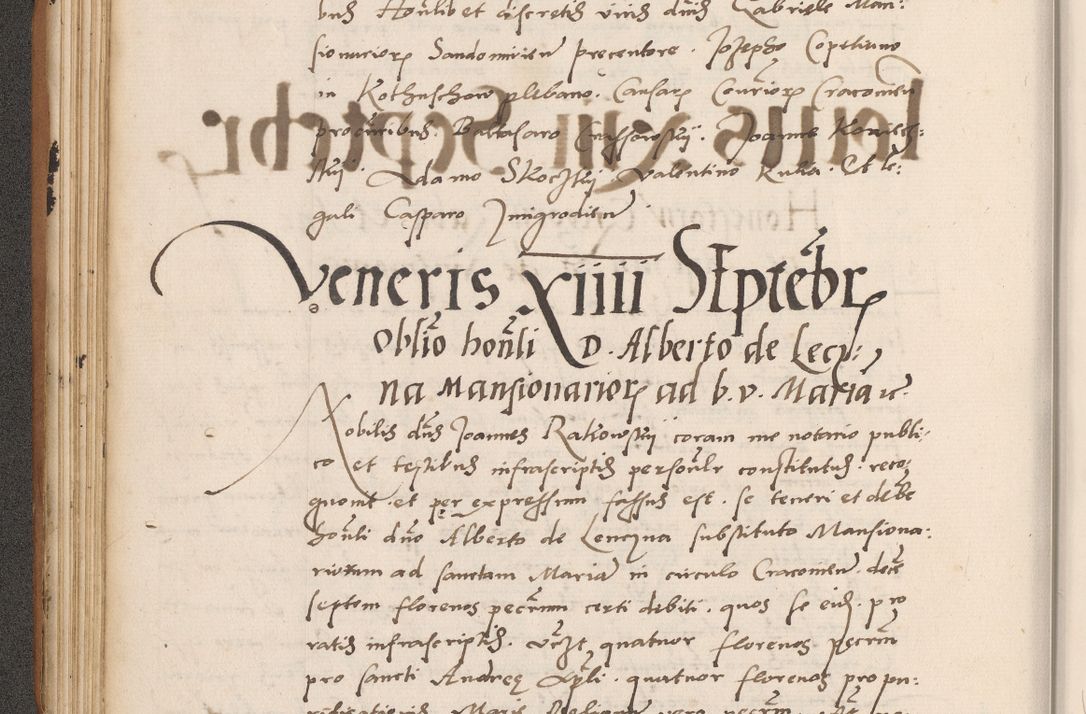 bus Hon̄li et discretis viris dn̄is Gabriele Man:
sionarior̨ Sandomirien̄ precentore. Josepho
in plebano. Causar̨ Cracovien̄
procūribus. Baltasaro Joanne
skij. Adamo Skoczkij. Valentino Kulka. Et le:
gali Casparo Jmigrodien̄.
Veneris xiiii SEptēbr̨
Oblīo hon̄li D. Alberto de Lecy:
na Mansionarior̨ ad b. v. Mariā etc̄.
Nobilis dn̄s Joannes Rakowskij coram me notario publi:
co et testibus infrascriptis personl̄r constitutus. reco:
guouit. et per expressum fassus est. se teneri et debē
hon̄li dn̄o Alberto de Lenczna substituto Mansiona:
riorum ad sanctam Mariā in circulo Cracovien̄. decē
septem florenos pecn̄m certi debiti. quos se eid. pro
ratis infrascriptis. vcz̄t quatuor florenos pecn̄m
pro sancti Andreę Ap̄li. quatuor florenos pro pu:
rificationis Marie